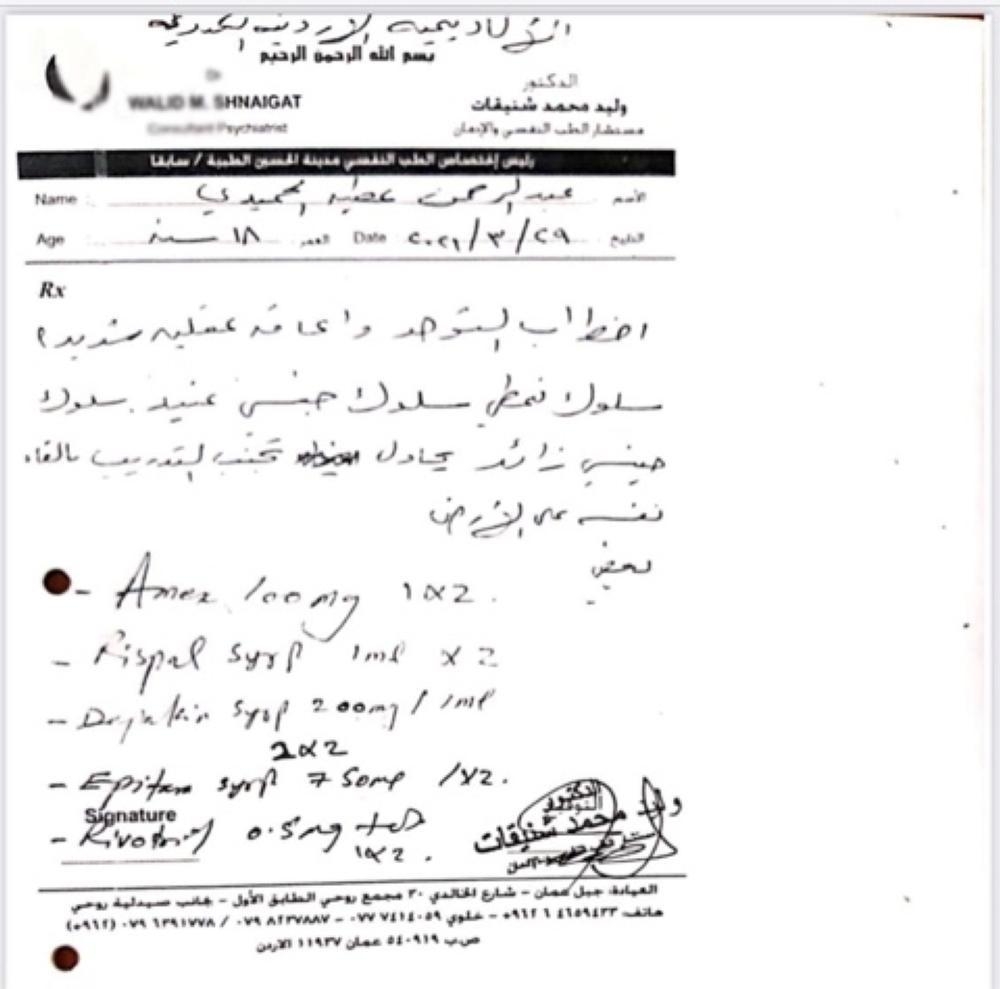 الأكاديمية الأردنية الكندية
بسم الله الرحمن الرحيم
Dr
WALID M. SHNAIGAT
Consultant Psychiatrist
الدكتور
وليد محمد شنيقات
مستشار الطب النفسي والإدمان
رئيس إختصاص الطب النفسي مدينة الحسين الطبية / سابقا
Name : عبدالرحمن عطيه الحميدي الأسم
Age : ١٨ سنة العمر Date ٢٠٢١/٣/٢٩ التاريخ
Rx
اضطراب التوحد واعاقه عقليه شديدة
سلوك نمطي سلوك جنسي عنيد. سلوك
جنسي زائد يحاول تجنب التدريب بالقاء
نفسه على الأرض
يعض
- Amex 100mg 1x2.
- Rispal syrp 1ml x 2
- Depakin syrp 200mg/1ml
2x2
- Epitam syrp 750mg 1x2.
Signature
- Rivotril 0.5mg tab
1x2.
الدكتور
وليد محمد شنيقات
العيادة: جبل عمان - شارع الخالدي ٣٠ مجمع روحي الطابق الأول - جانب صيدلية روحي
هاتف: ٤٦٥٩٤٣٣ ٦ ٩٦٢+ - خلوي ٠٧٧٧٤١٤٠٥٩ - ٠٧٩٨٢٣٧٨٨٧ / ٠٧٩٦٣٩١٧٧٨ (٩٦٢+)
ص.ب ٥٤٠٩١٩ عمان ١١٩٣٧ الاردن